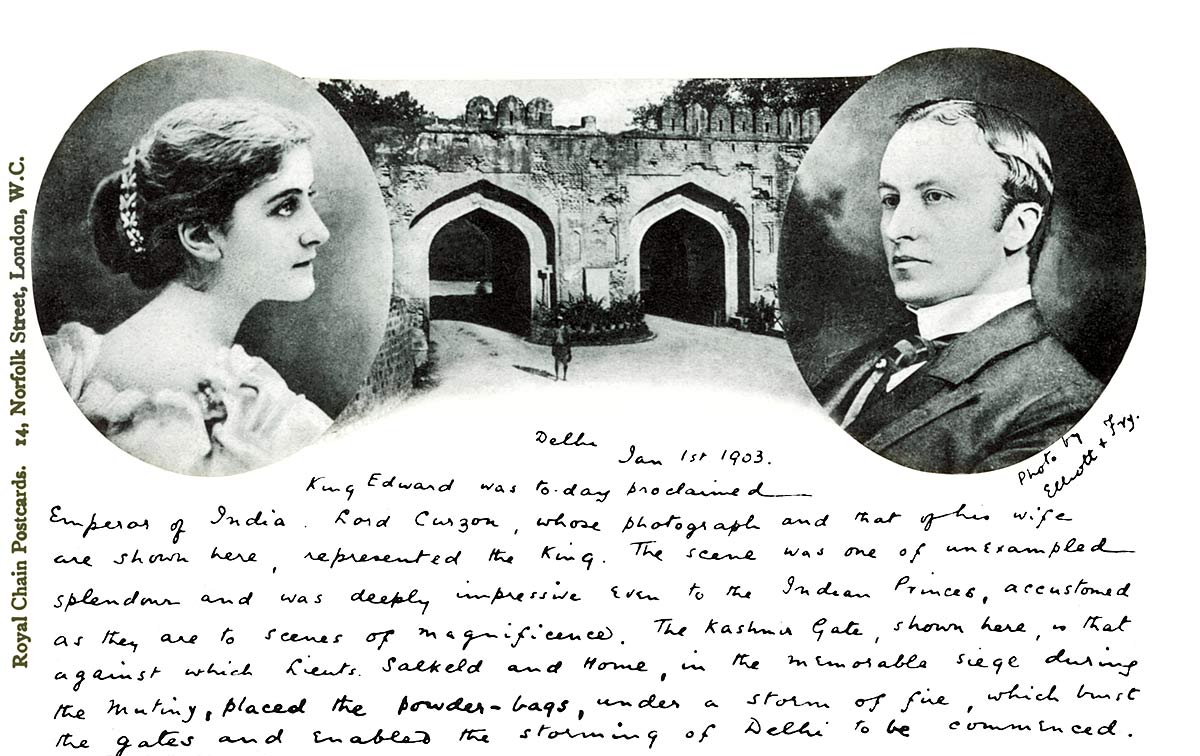 Royal Chain Postcards. 14, Norfolk Street, London, W.C.
Photo by
Elliott & Fry.
Delhi
Jan 1st 1903.
King Edward was to-day proclaimed
Emperor of India. Lord Curzon, whose photograph and that of his wife
are shown here, represented the King. The scene was one of unexampled
splendour and was deeply impressive even to the Indian Princes, accustomed
as they are to scenes of magnificence. The Kashmir Gate, shown here, is that
against which Lieuts. Salkeld and Home, in the memorable siege during
the Mutiny, placed the powder-bags, under a storm of fire, which burst
the gates and enabled the storming of Delhi to be commenced.